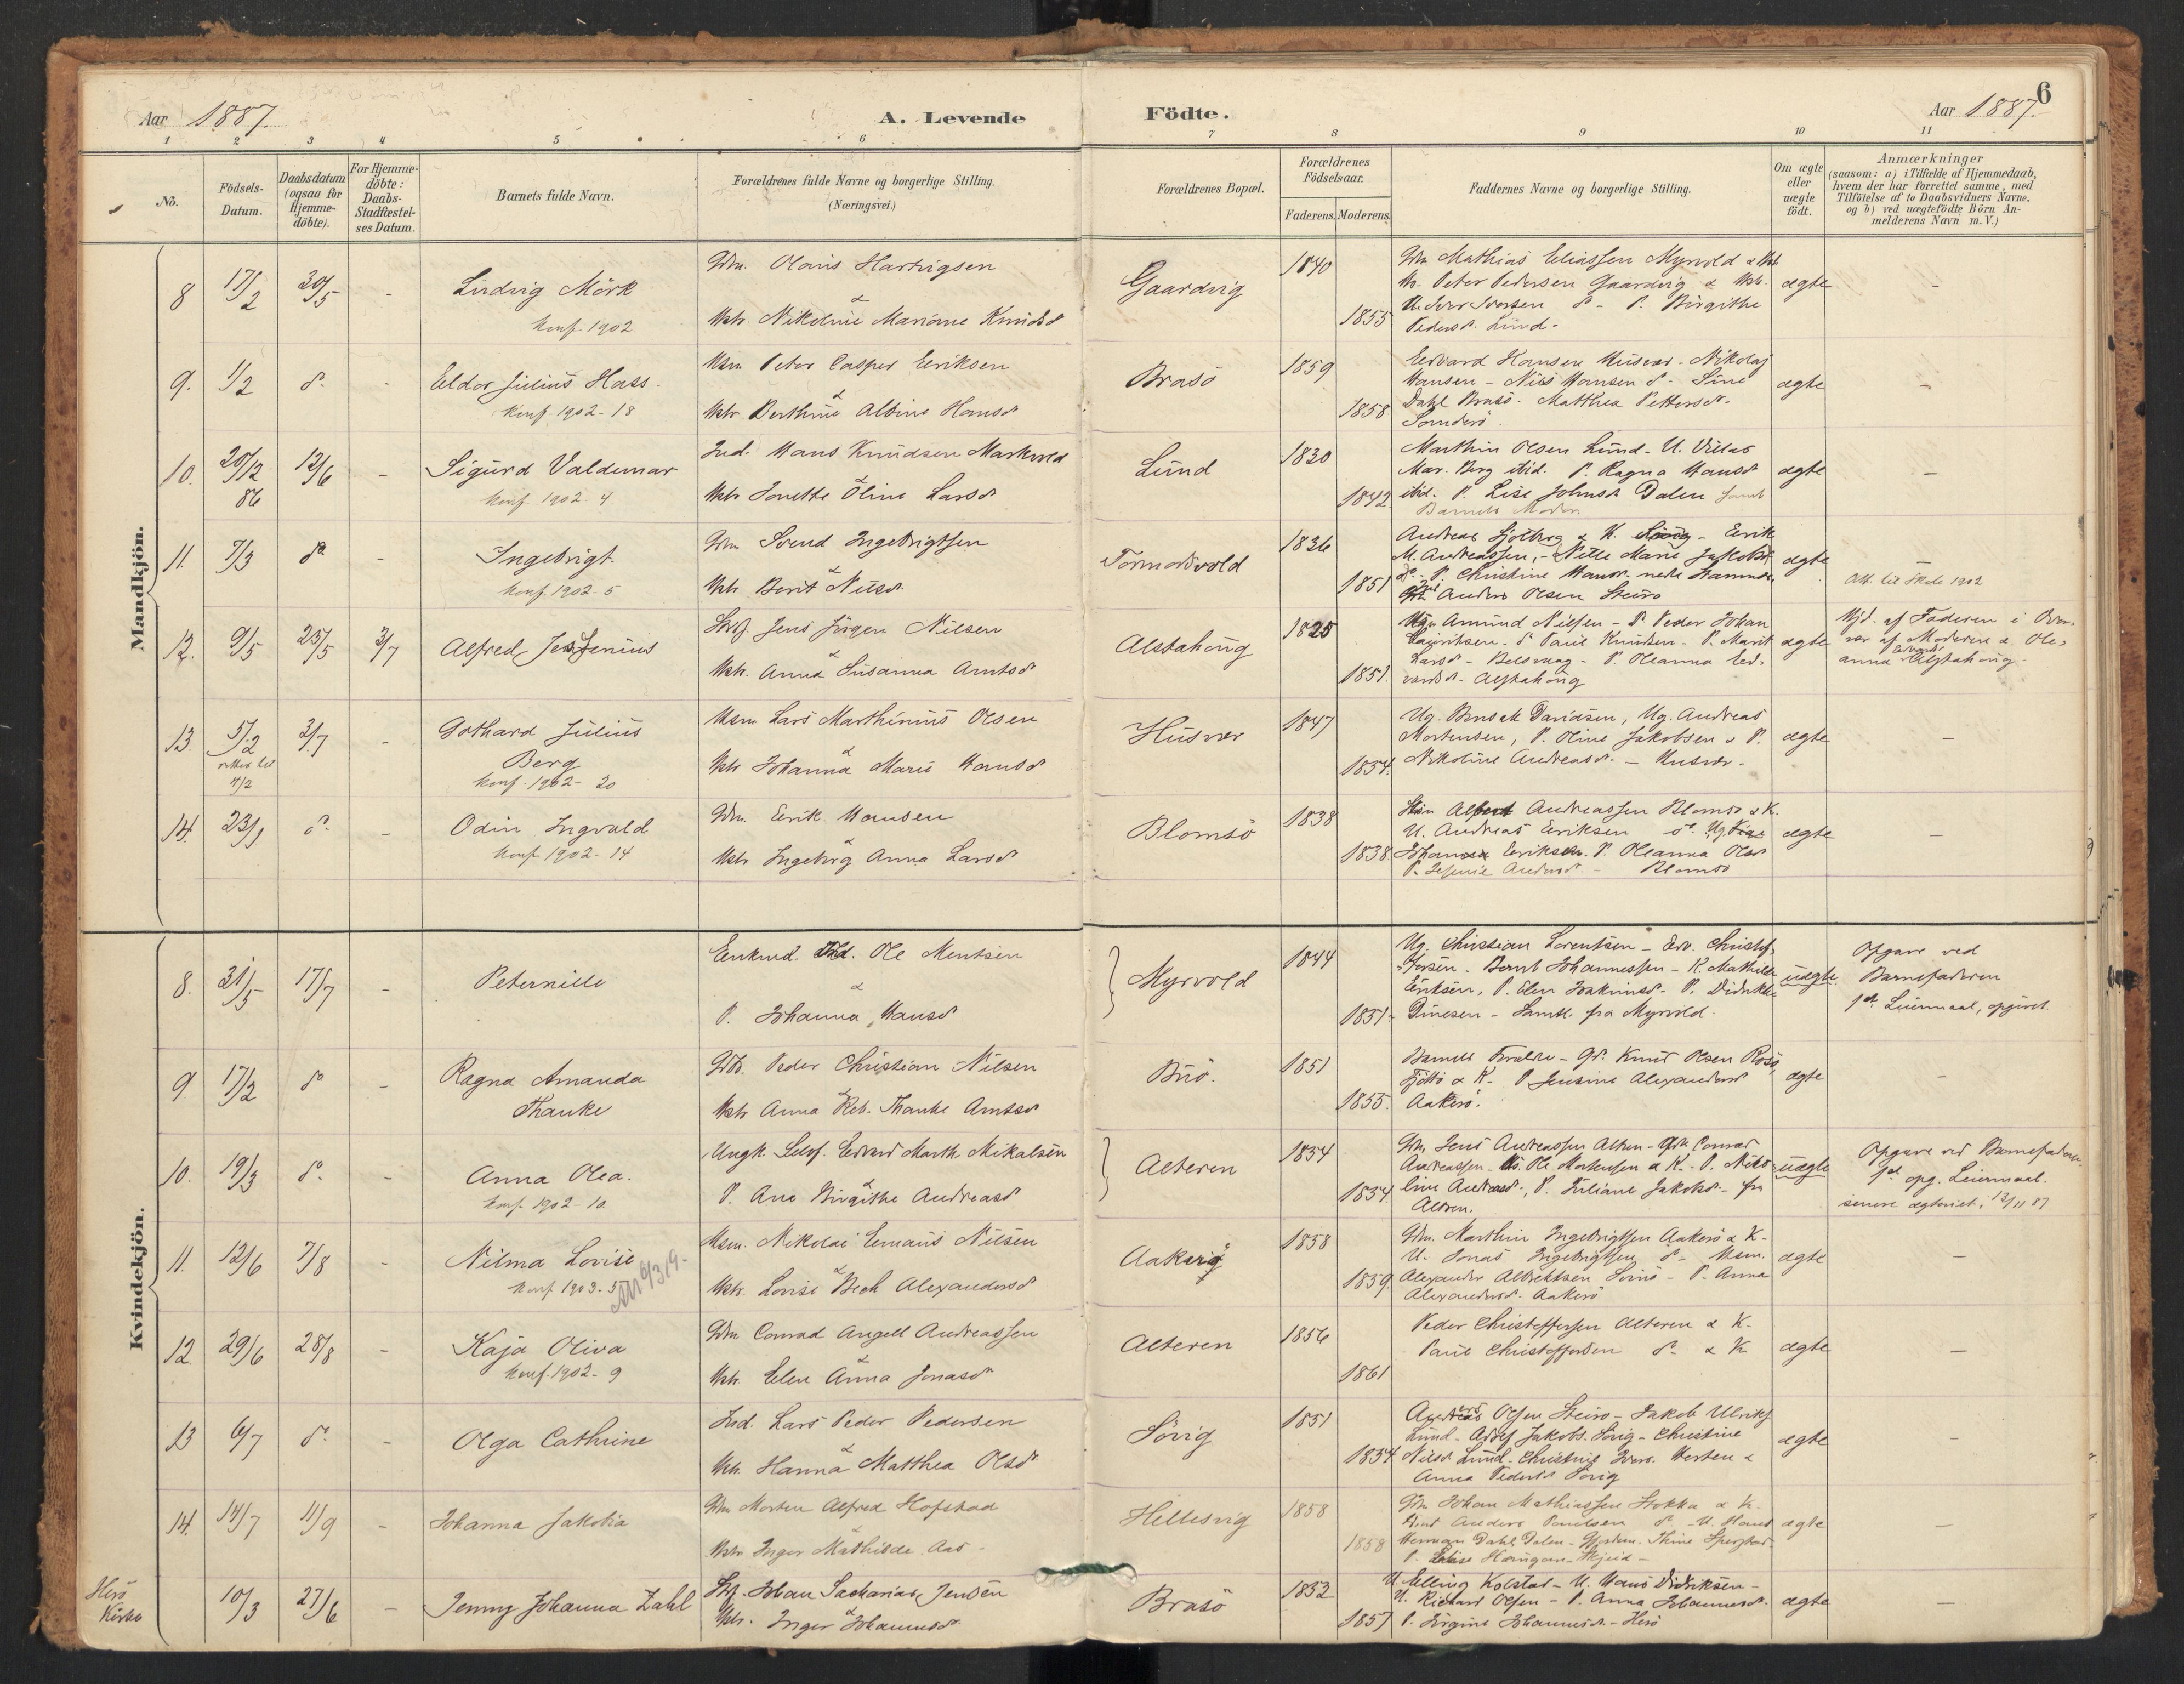 Aar 1887.
A. Levende
Födte.
Aar 1887.
6
1 2 3 4 5 6 7 8 9 10 11
No.
Födsels-
Datum.
Daabsdatum
(ogsaa for
Hjemme-
döbte).
For Hjemme-
döbte:
Daabs-
Stadfæstel-
ses Datum.
Barnets fulde Navn.
Forældrenes fulde Navne og borgerlige Stilling.
(Næringsvei.)
Forældrenes Bopæl.
Forældrenes
Födselsaar.
Faderens. Moderens.
Faddernes Navne og borgerlige Stilling.
Om ægte
eller
uægte
födt.
Anmærkninger
(saasom: a) i Tilfælde af Hjemmedaab,
hvem der har forrettet samme, med
Tilföielse af to Daabsvidners Navne,
og b) ved uægtefödte Börn An-
melderens Navn m. V.)
Mandkjön.
8 17/2 30/5 - Ludvig Mörk
Konf 1902
Gdm. Olaus Hartvigsen
&
Hstr. Nikoline Mariane Knudsd
Gaardvig
1840
1855
Gdm Mathias Eliassen Myrvold & Hst
Peter Pedersen Gaardvig &
P. Birgithe
Pedersd. Lund-
ægte
-
9. 1/2 do - Eldor Julius Hass
Konf 1902-18
Hsm Peter Casper Eriksen
&
Hstr Berthine Albine Hansd
Brasö
1859
1858
Edvard Hansen Husvær - Nikolaj
Hansen - Nils Hansen do - Sine
Dahl Brasö. Matthea Pettersd-
ægte
-
10. 20/12 86 12/6 - Sigurd Valdemar
Konf. 1902-4
Ind. Hans Knudsen Markvold
&
Hstr Jonette Oline Larsd
Lund
1830
1842
Marthin Olsen Lund- U.
Mar. Berg ibid. P. Ragna Hansd
ibid. P. Lise Johnsd Dalen samt
Barnets Moder
ægte
-
11. 7/3 do - Ingebrigt
Konf 1902-5
Gdm Svend Ingebrigtsen
&
Hstr Berit Nilsd.
Formordvold
1836
1851
Andreas Sjöberg & K. - Erik
M. Andreassen,- Nille Marie Jakobsd
do. P. Christine Hansd-
Anders Olsen Steiro
ægte
Att. til Skole 1902
12. 9/5 23/5 3/7 Alfred Jessenius
Strf. Jens Jörgen Nilsen
&
Hstr. Anna Susanna Arntsd
Alstahoug
1825
1851.
Amund Nilsen - Peder Johan
Lauritsen - Paul Knudsen - P. Marit
Larsd - Belsvaag - P. Oleanna Ed-
vardsd. Alstahoug
ægte
Hjd. af Faderen i Over-
vær af Moderen & Ole-
anna Edvardsd Alstahoug-
13. 5/2 rettes til 4/2 3/7 - Gothard Julius
Berg
Konf. 1902-20
Hsm Lars Marthinus Olsen
&
Hstr Johanna Marie Hansd
Husvær
1847
1854.
Ug. Davidsen, Ug. Andreas
Mortensen, P. Oline Jakobsen & P.
Nikoline Andreasd. - Husvær-
ægte
-
14. 23/1 do - Odin Ingvald
Konf 1902-14
Gdm. Erik Hansen
&
Hstr Ingeborg Anna Larsd
Blomsö
1838
1838
Albert Andreassen Blomsö & K.
U. Andreas Eriksen do. Ug.
Johan Eriksen. P. Oleanna Olsd
P. Andersd. - Blomsö
ægte
-
Kvindekjön.
8. 31/5 17/7 - Peternille
Enkmd. Ind. Ole Mentsen
&
P. Johanna Hansd
Myrvold
1844
1851-
Ug. Christian Lorentsen - Edv. Christof-
fersen - Bernt Johannessen - K. Mathilde
Eriksen, P. Elen Joakimsd- P. Didrikke
Dinesen - Samtl. fra Myrvold.
uægte
Opgave ved
Barnefaderen
1ste Leiermaal, opgivet.
9. 17/2 do - Ragna Amanda
Thanke
Gdb. Peder Christian Nilsen
&
Hstr Anna Reb. Thanke Arntsd
Buö.
1851
1855.
Barnets Forældre - Gd. Knud Olsen Rosö,
Tjöttö & K- P Jensine Alexandersd
Aakerö.
ægte
-
10. 19/3 do. - Anna Olea.
Konf. 1902-10.
Ungk. Selvf. Edvard Marth. Mikalsen
&
P. Ane Birgithe Andreasd
Alteren
1854
1854.
Gdm Jens Andreassen Altren - Conrad
Andreassen - Ole Mortensen & K. P. Niko-
line Andreasd., P. Juliane Jakobsd.- fra
Altren.
uægte
Opgave ved Barnefaderen
1ste opg. Leiermaal.
senere ægteviet, 13/11 87
11. 12/6 7/8 - Nilma Lovise
Konf 1903-5 6/3 19-
Hsm. Nikolai Emaus Nilsen
&
Hstr. Lovise Bech Alexandersd
Aakervig
1858
1859.
Gdm. Marthin Ingebrigtsen Aakerö & K-
U. Jonas Ingebrigtsen do- Hsm.
Alexander Albrektsen Sörvö - P. Anna
Alexandersd. Aakerö
ægte
-
12 29/6 28/8 - Kaja Oliva
Konf. 1902-9
Gdm Conrad Angell Andreassen
&
Hstr. Elen Anna Jonasd
Alteren
1856
1861
Peder Christoffersen Alteren & K-
Paul Christoffersen do- & K
ægte
-
13 6/7 do. - Olga Cathrine
Ind. Lars Peder Pedersen
&
Hstr. Hanna Matthea Olsd
Sörvig
1851
1854
Anders Olsen Steiro - Jakob Ulriks
Lund - Adolf Jakobs. Sörvig - Christine
Nilsd Lund - Christine Iver. Horten &
Anna Pedersd Sörvig
ægte
-
14. 14/7 11/9 - Johanna Jakobia
Gdm Morten Alfred Hofstad
&
Hstr Inger Mathilde Aas-
Hellesvig
1858
1858
Gdm Johan Mathiassen Stokka & K.
Anders Paulsen do. - U. Hans
Herman Dahl Dalen -
ægte
-
Herö
Kirke
10/3 27/6 - Jenny Johanna Zahl
Strf. Johan Sacharias Jensen
&
Hstr. Inger Johannesd
Brasö
1832
1857
U Elling Kolstad - U. Hans Didriksen -
U. Richard Olsen - P. Anna Johannesd.
P. Jörgine Johannesd.- Herö
ægte
-